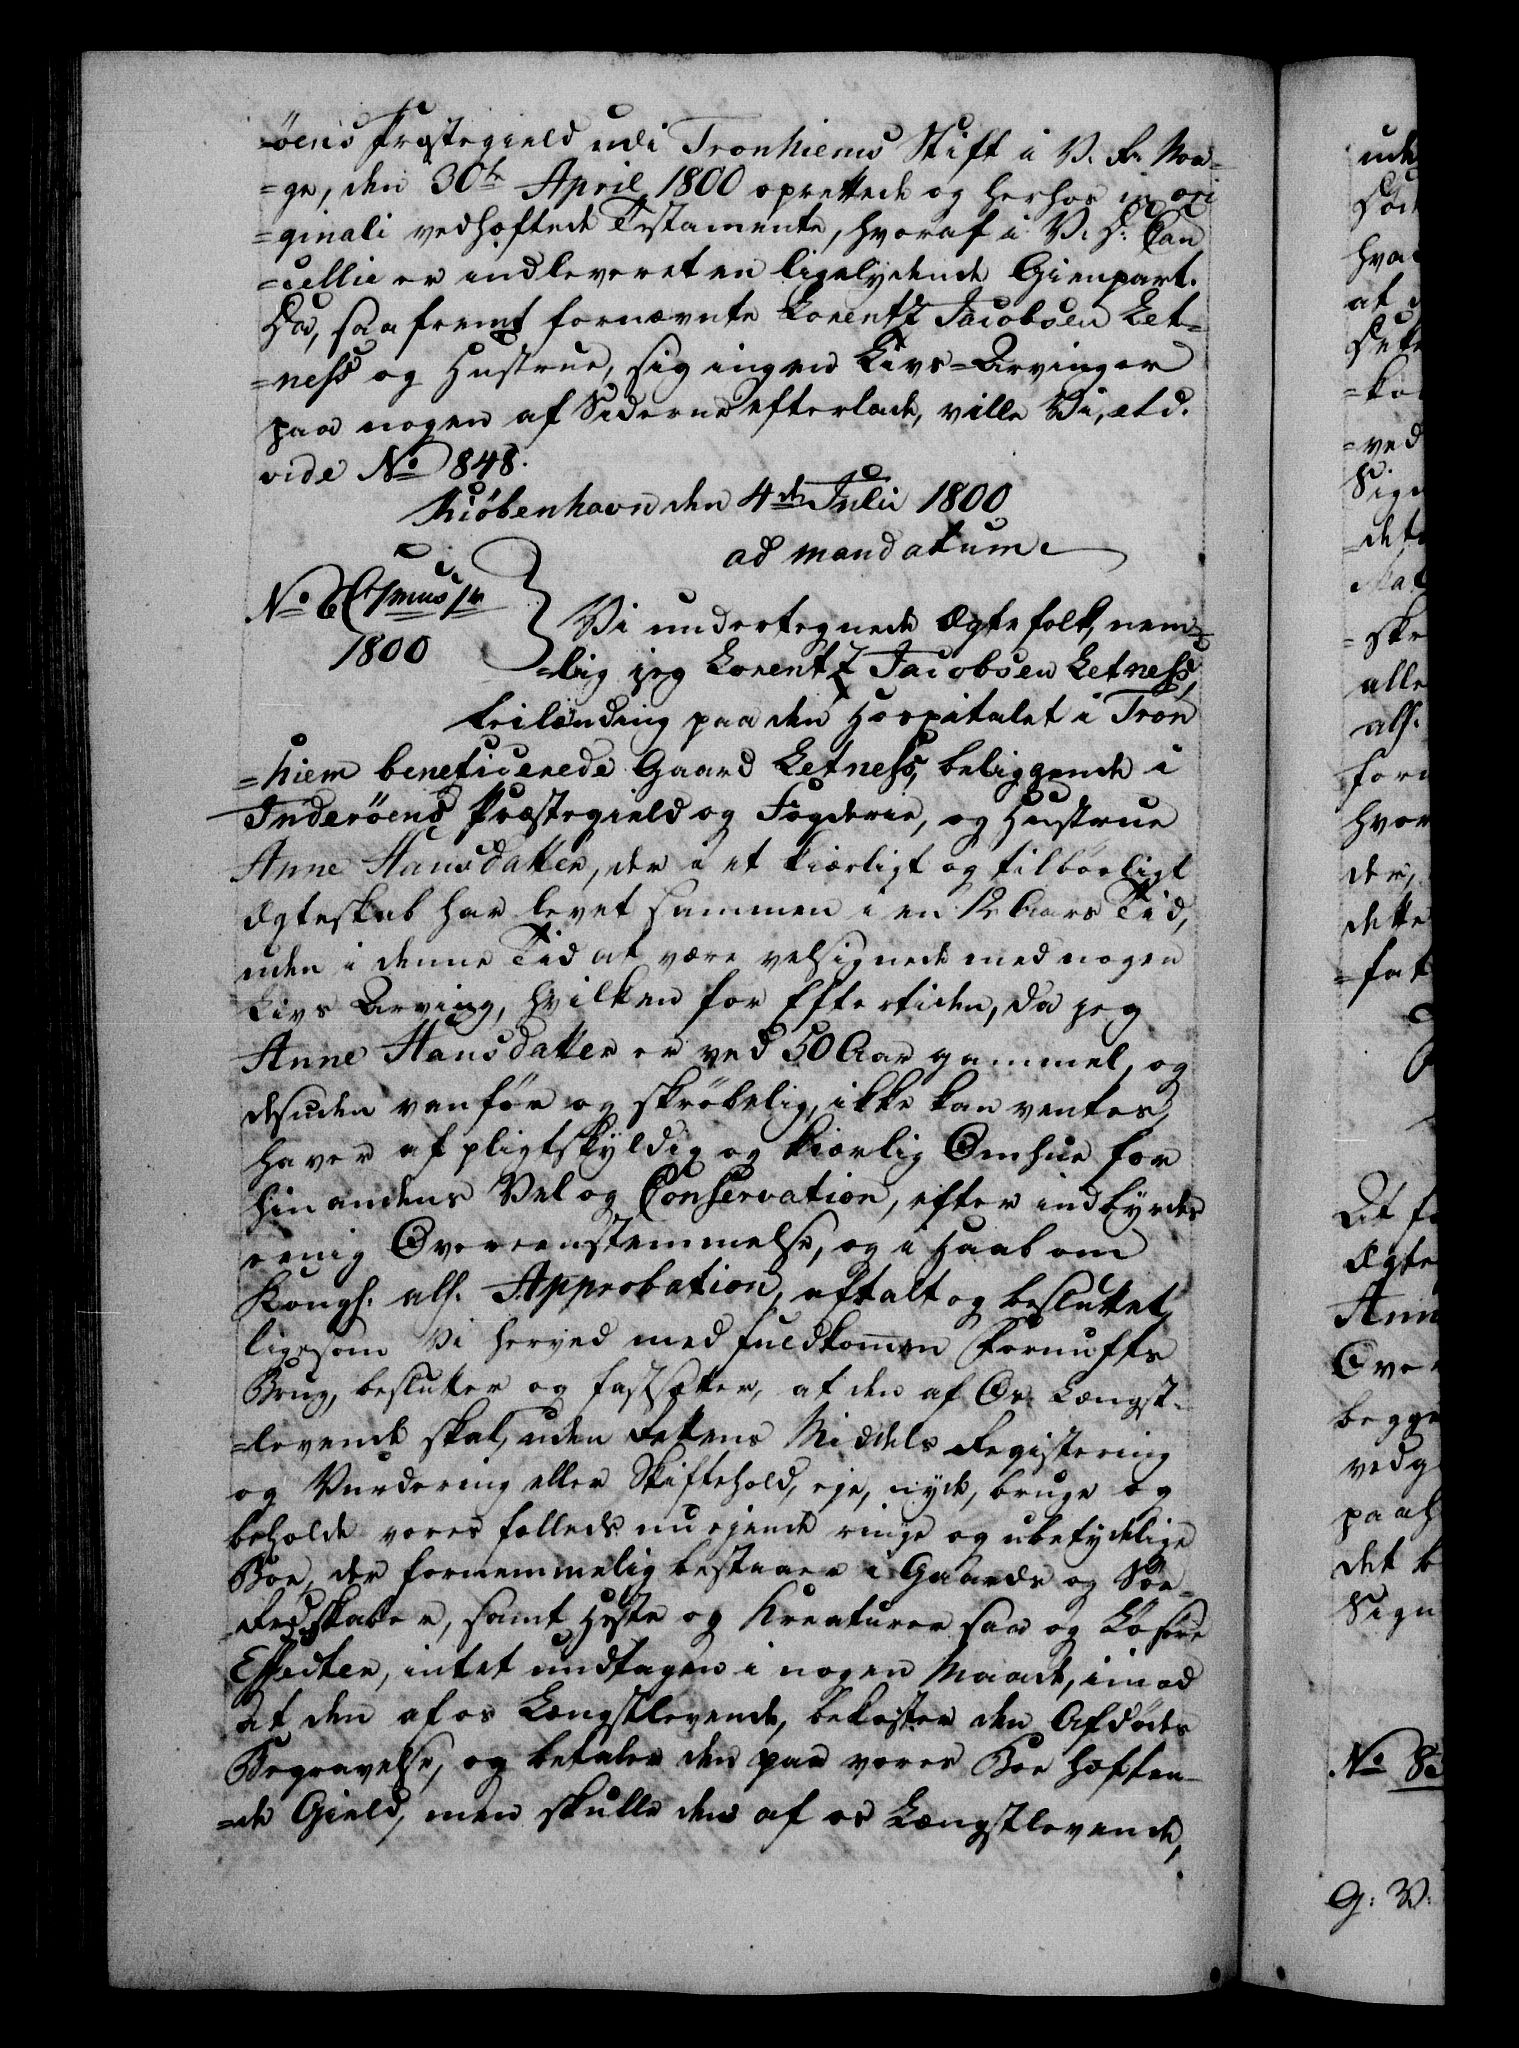 =öens Præstegield udi Tronhiems Stift i V. R. Nor=
=ge, den 30te April 1800 oprettede og herhos in ori
=ginali vedhæftede Testamente, hvoraf i V. D. Can
=cellie er indleveret en ligelydende Gienpart.
Da, saafremt fornævnte Lorentz Jacobsen Let=
=ness og Hustrue, sig ingen Livs=Arvinger
paa nogen af Siderne efterlade, ville Vi, etc.
vide No 848.
Kiöbenhavn den 4de Julii 1800
ad mandatum
No 6
1800
Vi undertegnede Ægtefolk, nem=
=lig jeg Lorentz Jacobsen Letness,
Leilænding paa den Hospitalet i Tron
=hiem beneficerede Gaard Letness, beliggende i
Inderöens Præstegield og Fogderie, og Hustrue
Anne Hansdatter, der i et kiærligt og tilbørligt
Ægteskab har levet sammen i en 12 Aars Tid,
uden i denne Tid at være velsignede med nogen
Livs Arving, hvilken for Eftertiden, da jeg
Anne Hansdatter er ved 50 Aar gammel, og
desuden vanför og skröbelig, ikke kan ventes,
haver af pligtskyldig og kiærlig Omhue for
hinandens Vel og Conservation, efter indbyrdes
eenig Overeenstemmelse, og i Haab om
Kongl. all. Approbation, aftalt og besluttet,
ligesom Vi herved med fuldkommen Fornufts
Brug, beslutter og fastsætter, at den af Os Længst=
=levende skal, uden Rettens Middels Registering
og Vurdering eller Skiftehold, eje, nyde, bruge og
beholde vores fælleds nu ejende ringe og ubetydelige
Boe, der fornemmelig bestaaer i Gaards og Söe=
Redskaber, samt Heste og Kreaturer saa og Lösöre
Effecter, intet undtagen i nogen Maade, imod
at den af os Længstlevende, bekoster den Afdödes
Begravelse, og betaler den paa vores Boe hæften=
=de Gield, men skulle den af os Længstlevende,
No 8
G: V: